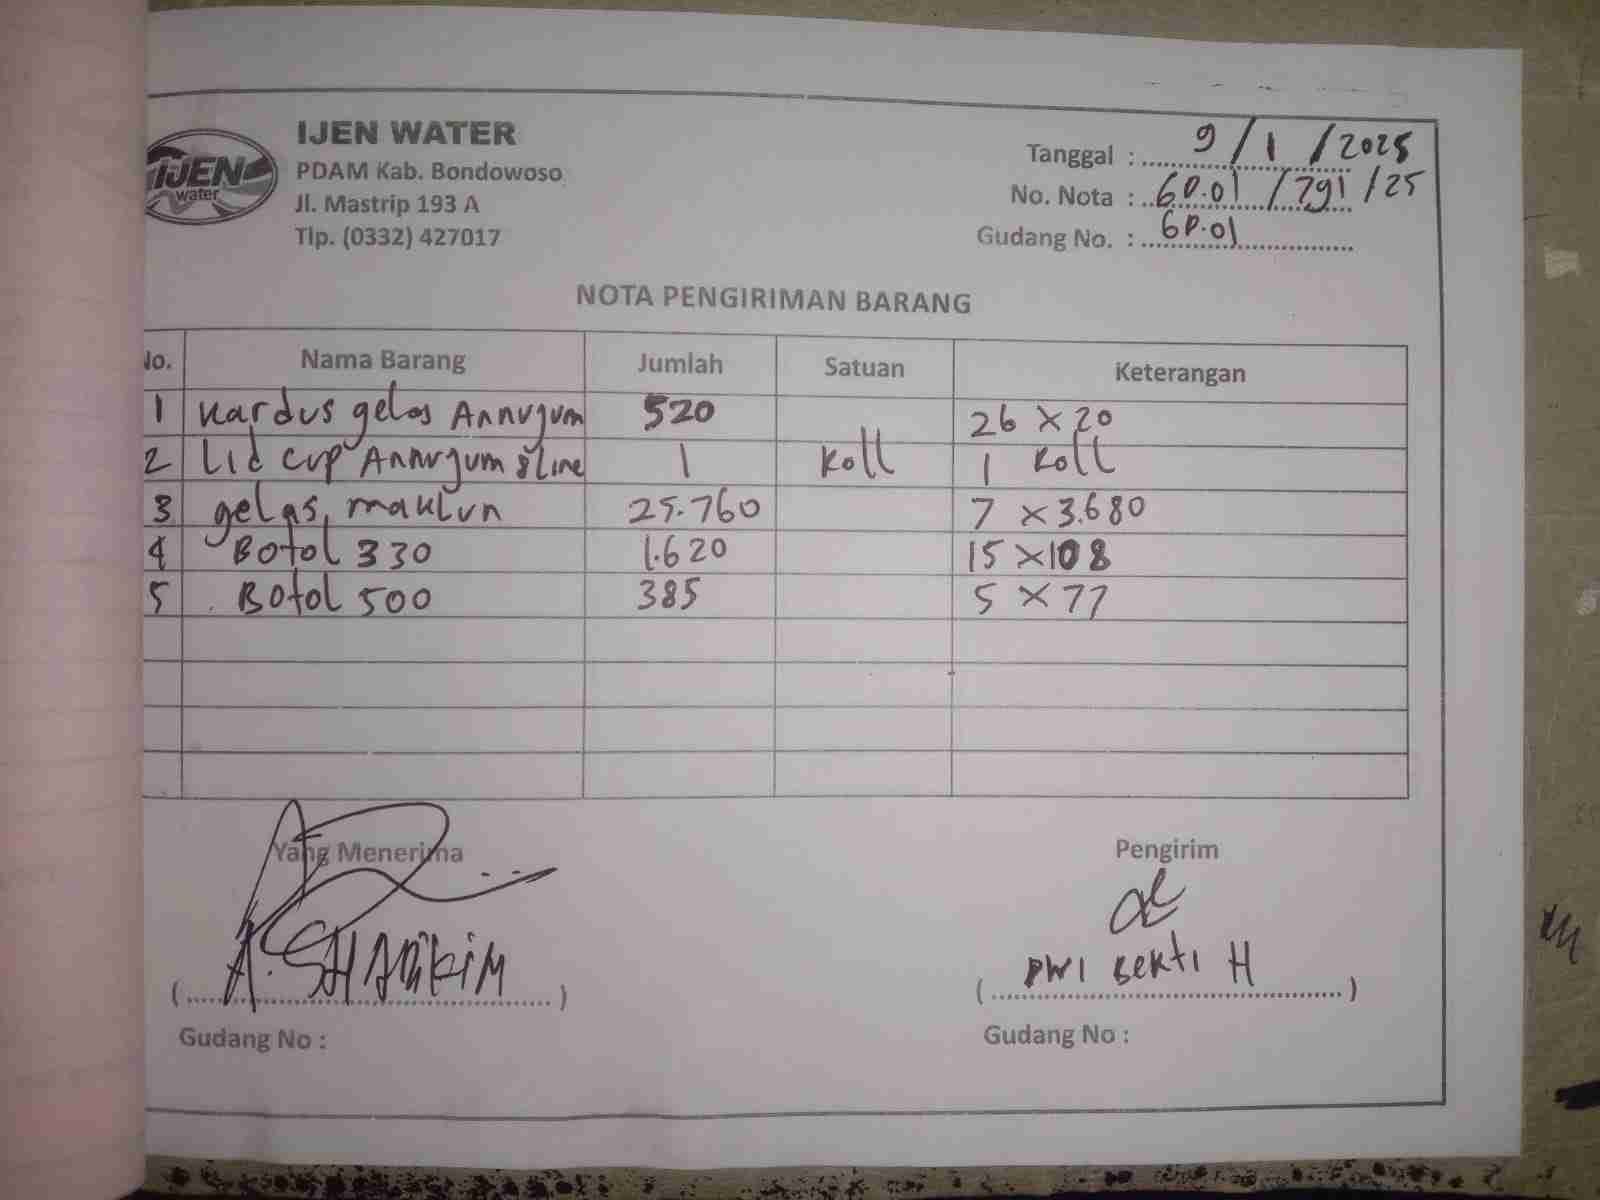 IJEN
water
IJEN WATER
PDAM Kab. Bondowoso
Jl. Mastrip 193 A
Tlp. (0332) 427017
Tanggal : 9 / 1 / 2025
No. Nota : 60.01 / 791 / 25
Gudang No. : 60.01
NOTA PENGIRIMAN BARANG
No. Nama Barang Jumlah Satuan Keterangan
1 Kardus gelas Annujum 520 26 x 20
2 Lid cup Annujum 8 line 1 Roll 1 Roll
3 gelas maklun 25.760 7 x 3.680
4 Botol 330 1.620 15 x 108
5 Botol 500 385 5 x 77
Yang Menerima Pengirim
( A. ) ( DWI BEKTI H )
Gudang No : Gudang No :